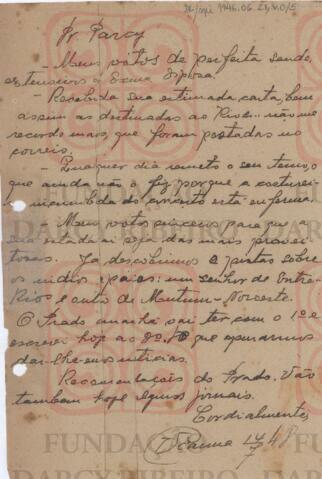 Dr. Darcy
— Meus votos de perfeita saude,
extensivos a Exma. Esposa.
Recebida sua estimada carta, bem
assim as destinadas ao Rio — não me
recordo mais, que foram postadas no
correio.
— Qualquer dia remeto o seu terno, o
que ainda não o fiz porque a costurei-
do está enferma.
— Meus votos sinceros para que a
sua estada aí seja das mais provei-
tosas. Já descobrimos 2 pistas sobre
os indios : um senhor de Entre-
Rios e outro de Mutum - Noroeste.
O Prado amanhã vai ter com o 1º e
escrevi hoje ao 2º. que aguardamos
dar-lhe-emos noticias.
Recomendações do Prado. Vão
tambem hoje alguns jornais.
Cordialmente,
48
7
FUNDAÇÃO
DARCY RIBEIRO